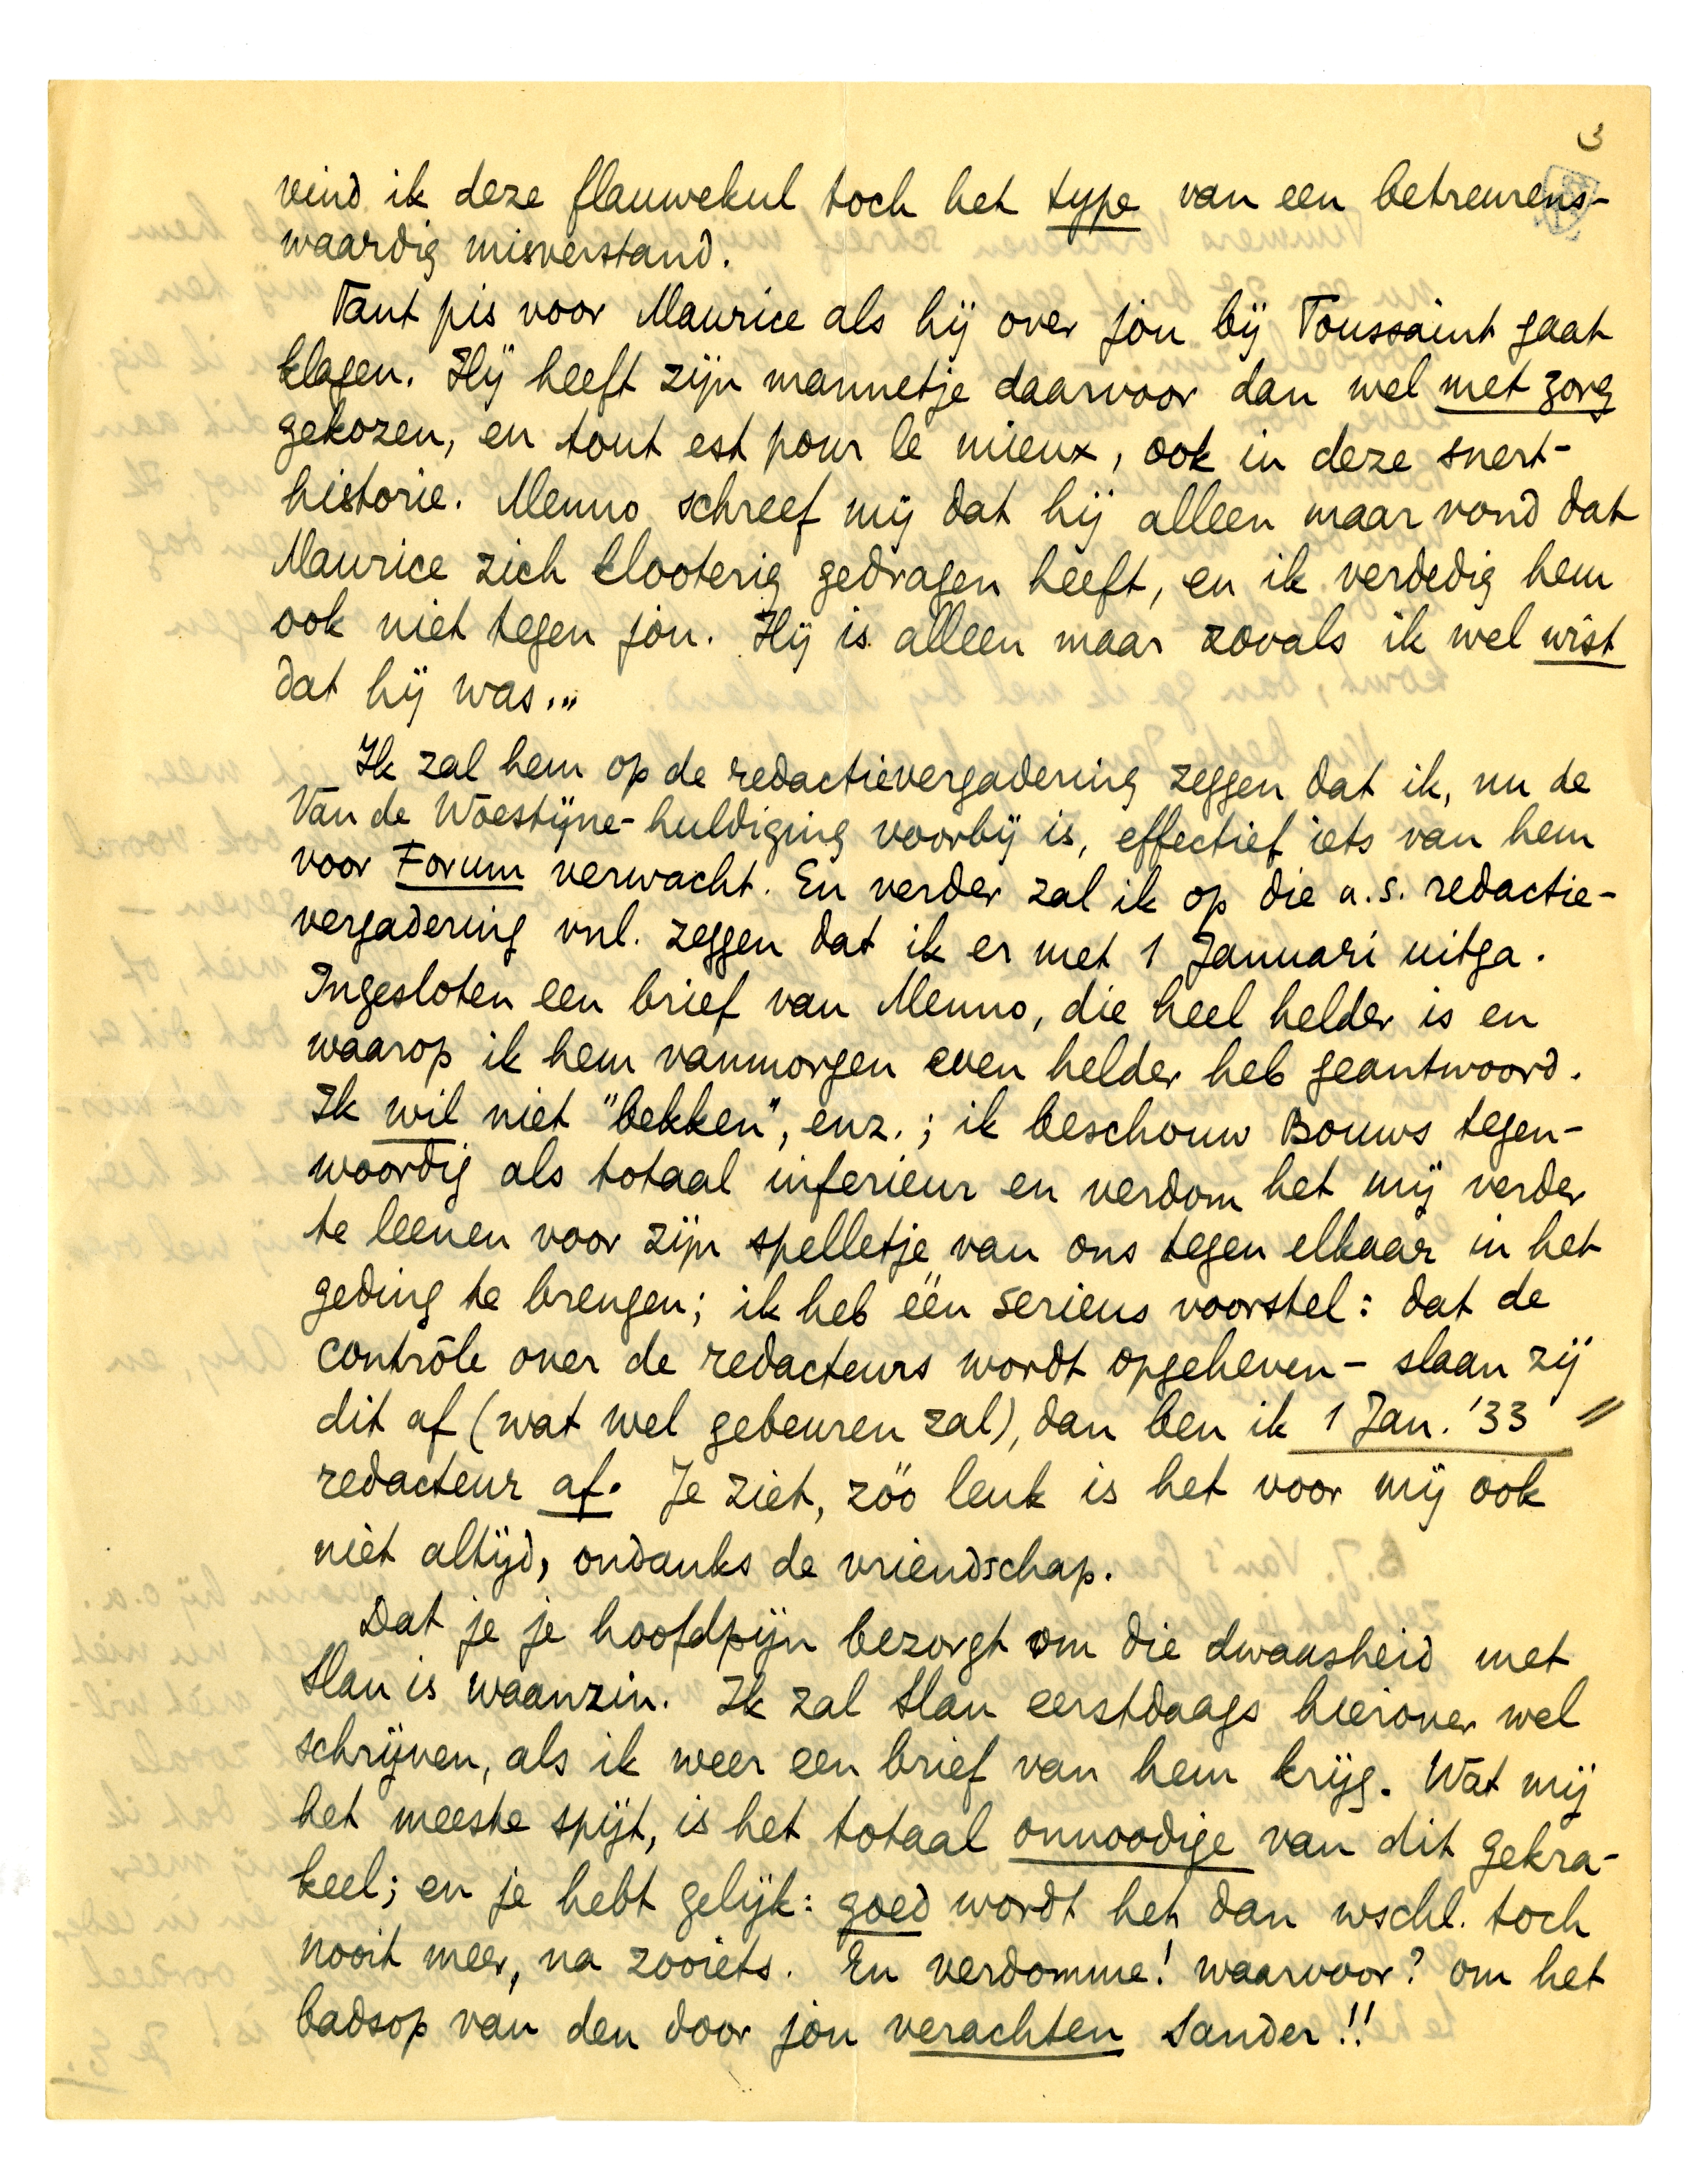 3
vind ik deze flauwekul toch het type van een betreurens-
waardig misverstand.
Tant pis voor Maurice als hij over jou bij Toussaint gaat
klagen. Hij heeft zijn mannetje daarvoor dan wel met zorg
gekozen, en tout est pour le mieux, ook in deze snert-
historie. Menno schreef mij dat hij alleen maar vond dat
Maurice zich klooterig gedragen heeft, en ik verdedig hem
ook niet tegen jou. Hij is alleen maar zooals ik wel wist
dat hij was...
Ik zal hem op de redactievergadering zeggen dat ik, nu de
Van de Woestijne-huldiging voorbij is, effectief iets van hem
voor Forum verwacht. En verder zal ik op die a.s. redactie-
vergadering vnl. zeggen dat ik er met 1 Januari uitga.
Ingesloten een brief van Menno, die heel helder is en
waarop ik hem vanmorgen even helder heb geantwoord.
Ik wil niet "bekken", enz.; ik beschouw Bouws tegen-
woordig als totaal inferieur en verdom het mij verder
te leenen voor zijn spelletje van ons tegen elkaar in het
geding te brengen; ik heb één serieus voorstel: dat de
contrôle over de redacteurs wordt opgeheven - slaan zij
dit af (wat wel gebeuren zal), dan ben ik 1 Jan. '33
redacteur af. Je ziet, zóó leuk is het voor mij ook
niet altijd, ondanks de vriendschap.
Dat je je hoofdpijn bezorgt om die dwaasheid met
Slau is waanzin. Ik zal Slau eerstdaags hierover wel
schrijven, als ik weer een brief van hem krijg. Wat mij
het meeste spijt, is het totaal onnoodige van dit gekra-
keel; en je hebt gelijk: goed wordt het dan wschl. toch
nooit meer, na zooiets. En verdomme! waarvoor? om het
badsop van den door jou verachten Sander!!